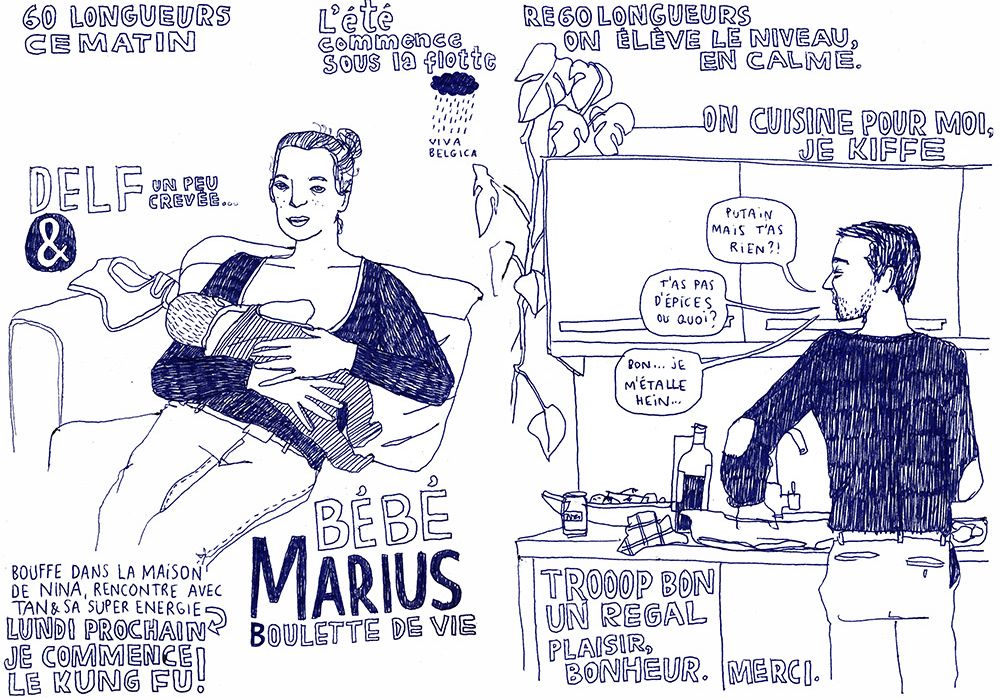 60 LONGUEURS
CE MATIN
L'été
commence
sous la flotte
VIVA
BELGICA
DELF UN PEU
CREVÉE...
&
BÉBÉ
MARIUS
BOULETTE DE VIE
BOUFFE DANS LA MAISON
DE NINA, RENCONTRE AVEC
TAN & SA SUPER ENERGIE
LUNDI PROCHAIN
JE COMMENCE
LE KUNG FU!
RE60 LONGUEURS
ON ÉLÈVE LE NIVEAU,
EN CALME.
ON CUISINE POUR MOI,
JE KIFFE
PUTAIN
MAIS T'AS
RIEN?!
T'AS PAS
D'ÉPICES
OU QUOI?
BON... JE
M'ÉTALLE
HEIN...
TROOOP BON
UN REGAL
PLAISIR,
BONHEUR.
MERCI.